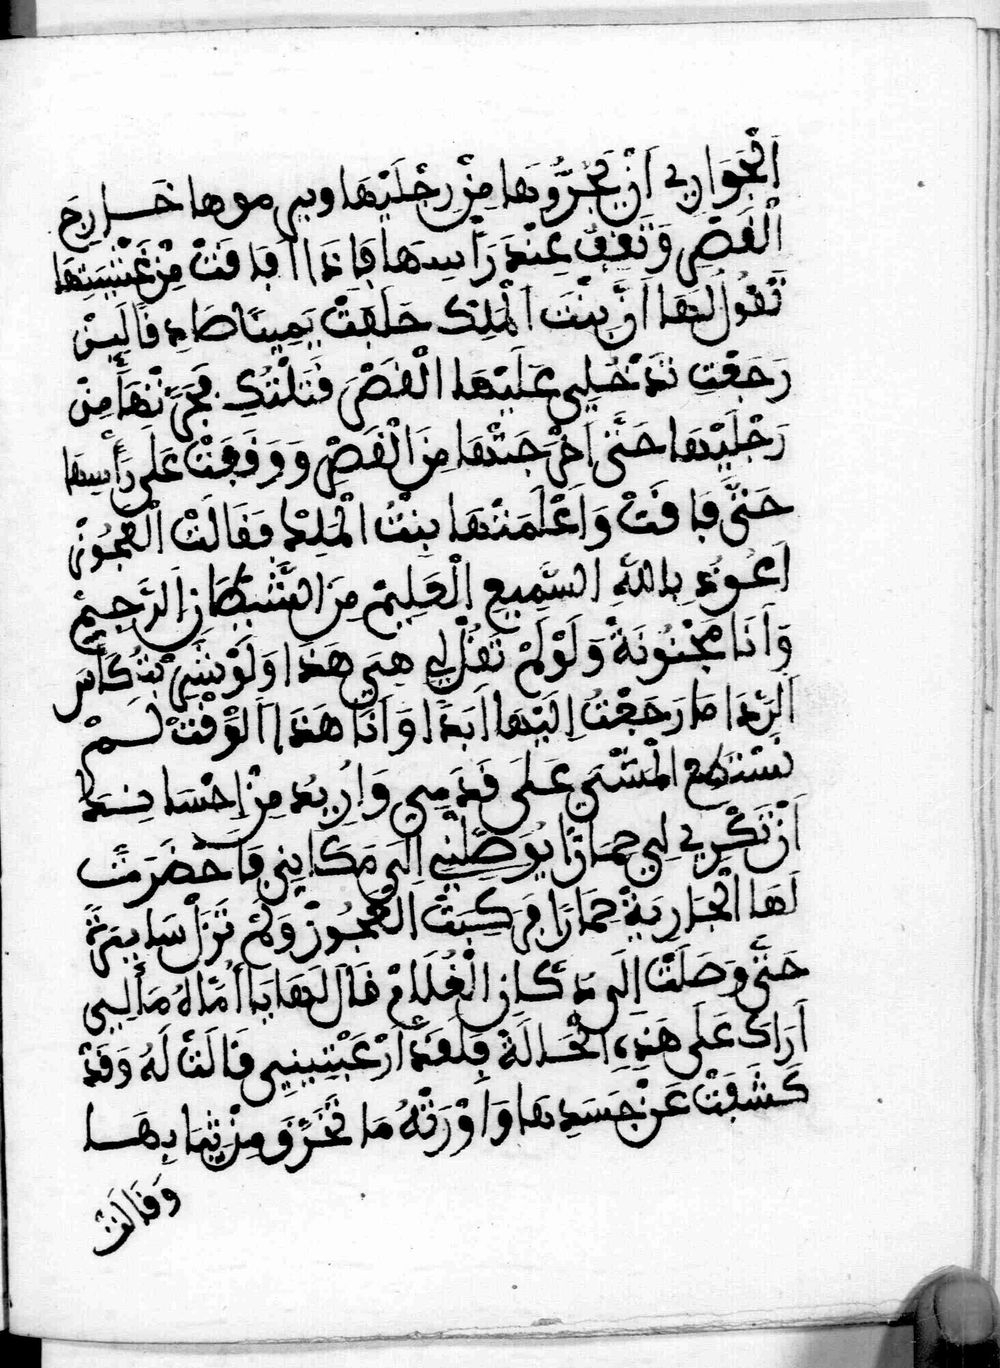 اَلْجَوَارِي اَنْ يَجُرُّوهَا مِنْ رِجْلَيْهَا ويرموها خَارِجَ
اَلْقَصْرِ وَتَقِفْ عِنْدَ رَأْسِهَا فَإِذَا اَفَاقَتْ مِنْ غَشْيَتِهَا
تَقُولُ لَهَا اَنَّ بِنْتَ اَلْمَلِكِ حَلَفَتْ يَمِينًا صَادِقًا لَيِنْ
رَجَعْتِ تَدْخُلِي عَلَيْهَا الْقَصْرَ قَتَلْتُكِ فَجَرَّتْهَا مِنْ
رِجْلَيْهَا حَتَّى اَخْرَجَتْهَا مِنَ الْقَصْرِ وَوَقَفَتْ عَلَى رَأْسِهَا
حَتَّى فَاقَتْ وَاَعْلَمَتْهَا بِنْتُ الْمَلِكِ فَقَالَتْ الْعَجُوزُ
اَعُوذُ بِاللَّهِ السَّمِيعِ الْعَلِيمْ مِنَ الشَّيْطَانِ الرَّجِيمْ
وَاَنَا مَجْنُونَةٌ وَلَوْ لَمْ تَقُلْ لِي هِيَ هَذَا وَلَوْ شَرِبْتُ كَأْسَ
اَلرَّدَا مَا رَجَعْتُ اِلَيْهَا اَبَدًا وَاَنَا هَذَا اَلْوَقْتْ لَمْ
نَسْتَطِعْ الْمَشْيَ عَلَى قَدَمِي وَاُرِيدُ مِنْ اِحْسَانِكِ
اَنْ تَكْرِي لِي حِمَارًا يُوَصِّلْنِي اِلَى مَكَانِي فَاَحْضَرَتْ
لَهَا الْجَارِيَةُ حِمَارَا فَرَكِبَتْ الْعَجُوزْ وَلَمْ تَزَلْ سَايِرَةً
حَتَّى وَصَلَتْ اِلَى دُكَانِ الْغُلَامْ فَقَالَ لَهَا يَا اُمَّاهُ مَا لِي
اَرَاكِ عَلَى هَذِهِ الْحَالَةِ فَلَقَدْ اَرْعَبْتِينِي قَالَتْ لَهُ وَقَدْ
كَشَفَتْ عَنْ جَسَدِهَا وَاَوْرَتْهُ مَا تَخَرَّقَ مِنْ ثِيَابِهَا
وَقَالَتْ